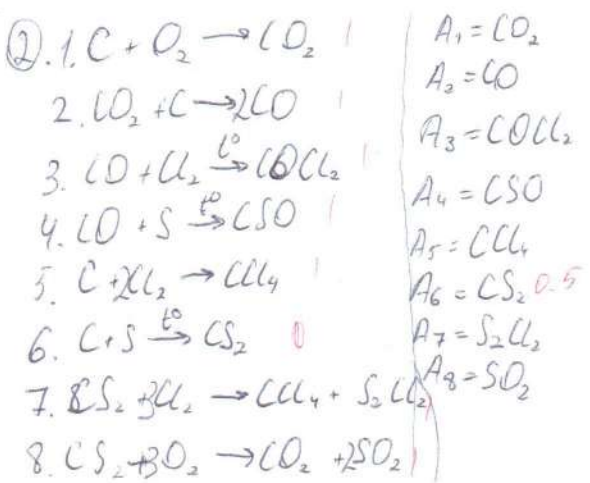 2. 1. C + O₂ → CO₂ 1
2. CO₂ + C → 2CO 1
3. CO + Cl₂ t°→ COCl₂ 1
4. CO + S t°→ CSO 1
5. C + 2Cl₂ → CCl₄ 1
6. C + S t°→ CS₂ 0
7. CS₂ + 3Cl₂ → CCl₄ + S₂Cl₂ 1
8. CS₂ + 3O₂ → CO₂ + 2SO₂ 1
A₁ = CO₂
A₂ = CO
A₃ = COCl₂
A₄ = CSO
A₅ = CCl₄
A₆ = CS₂ 0.5
A₇ = S₂Cl₂
A₈ = SO₂